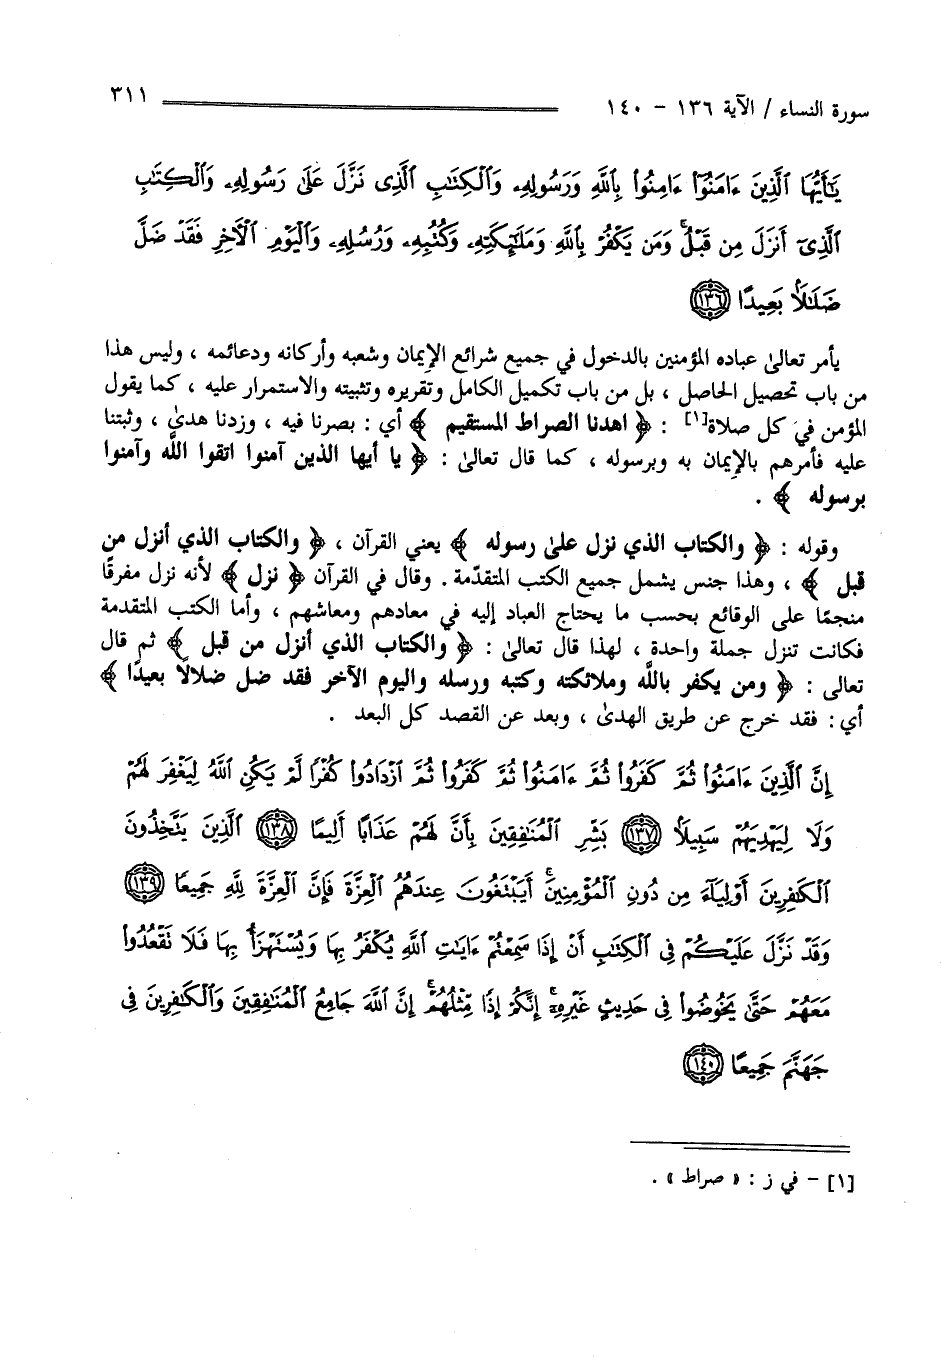 سورة النساء / الآية ١٣٦ - ١٤٠ ٣١١
يَٰٓأَيُّهَا ٱلَّذِينَ ءَامَنُوٓا۟ ءَامِنُوا۟ بِٱللَّهِ وَرَسُولِهِۦ وَٱلْكِتَٰبِ ٱلَّذِى نَزَّلَ عَلَىٰ رَسُولِهِۦ وَٱلْكِتَٰبِ
ٱلَّذِىٓ أَنزَلَ مِن قَبْلُ ۚ وَمَن يَكْفُرْ بِٱللَّهِ وَمَلَٰٓئِكَتِهِۦ وَكُتُبِهِۦ وَرُسُلِهِۦ وَٱلْيَوْمِ ٱلْءَاخِرِ فَقَدْ ضَلَّ
ضَلَٰلًۢا بَعِيدًا ١٣٦
يأمر تعالىٰ عباده المؤمنين بالدخول في جميع شرائع الإيمان وشعبه وأركانه ودعائمه ، وليس هذا
من باب تحصيل الحاصل ، بل من باب تكميل الكامل وتقريره وتثبيته والاستمرار عليه ، كما يقول
المؤمن في كل صلاة[١] : ﴿ اهدنا الصراط المستقيم ﴾ أي : بصرنا فيه ، وزدنا هدىٰ ، وثبتنا
عليه فأمرهم بالإيمان به وبرسوله ، كما قال تعالىٰ : ﴿ يا أيها الذين آمنوا اتقوا اللَّه وآمنوا
برسوله ﴾ .
وقوله : ﴿ والكتاب الذي نزل علىٰ رسوله ﴾ يعني القرآن ، ﴿ والكتاب الذي أنزل من
قبل ﴾ ، وهذا جنس يشمل جميع الكتب المتقدّمة . وقال في القرآن ﴿ نزل ﴾ لأنه نزل مفرقًا
منجمًا على الوقائع بحسب ما يحتاج العباد إليه في معادهم ومعاشهم ، وأما الكتب المتقدمة
فكانت تنزل جملة واحدة ، لهذا قال تعالىٰ : ﴿ والكتاب الذي أنزل من قبل ﴾ ثم قال
تعالى : ﴿ ومن يكفر باللَّه وملائكته وكتبه ورسله واليوم الآخر فقد ضل ضلالًا بعيدًا ﴾
أي : فقد خرج عن طريق الهدىٰ ، وبعد عن القصد كل البعد .
إِنَّ ٱلَّذِينَ ءَامَنُوا۟ ثُمَّ كَفَرُوا۟ ثُمَّ ءَامَنُوا۟ ثُمَّ كَفَرُوا۟ ثُمَّ ٱزْدَادُوا۟ كُفْرًا لَّمْ يَكُنِ ٱللَّهُ لِيَغْفِرَ لَهُمْ
وَلَا لِيَهْدِيَهُمْ سَبِيلًۢا ١٣٧ بَشِّرِ ٱلْمُنَٰفِقِينَ بِأَنَّ لَهُمْ عَذَابًا أَلِيمًا ١٣٨ ٱلَّذِينَ يَتَّخِذُونَ
ٱلْكَٰفِرِينَ أَوْلِيَآءَ مِن دُونِ ٱلْمُؤْمِنِينَ ۚ أَيَبْتَغُونَ عِندَهُمُ ٱلْعِزَّةَ فَإِنَّ ٱلْعِزَّةَ لِلَّهِ جَمِيعًا ١٣٩
وَقَدْ نَزَّلَ عَلَيْكُمْ فِى ٱلْكِتَٰبِ أَنْ إِذَا سَمِعْتُمْ ءَايَٰتِ ٱللَّهِ يُكْفَرُ بِهَا وَيُسْتَهْزَأُ بِهَا فَلَا تَقْعُدُوا۟
مَعَهُمْ حَتَّىٰ يَخُوضُوا۟ فِى حَدِيثٍ غَيْرِهِۦٓ ۚ إِنَّكُمْ إِذًا مِّثْلُهُمْ ۗ إِنَّ ٱللَّهَ جَامِعُ ٱلْمُنَٰفِقِينَ وَٱلْكَٰفِرِينَ فِى
جَهَنَّمَ جَمِيعًا ١٤٠
[١] - في ز : « صراط » .